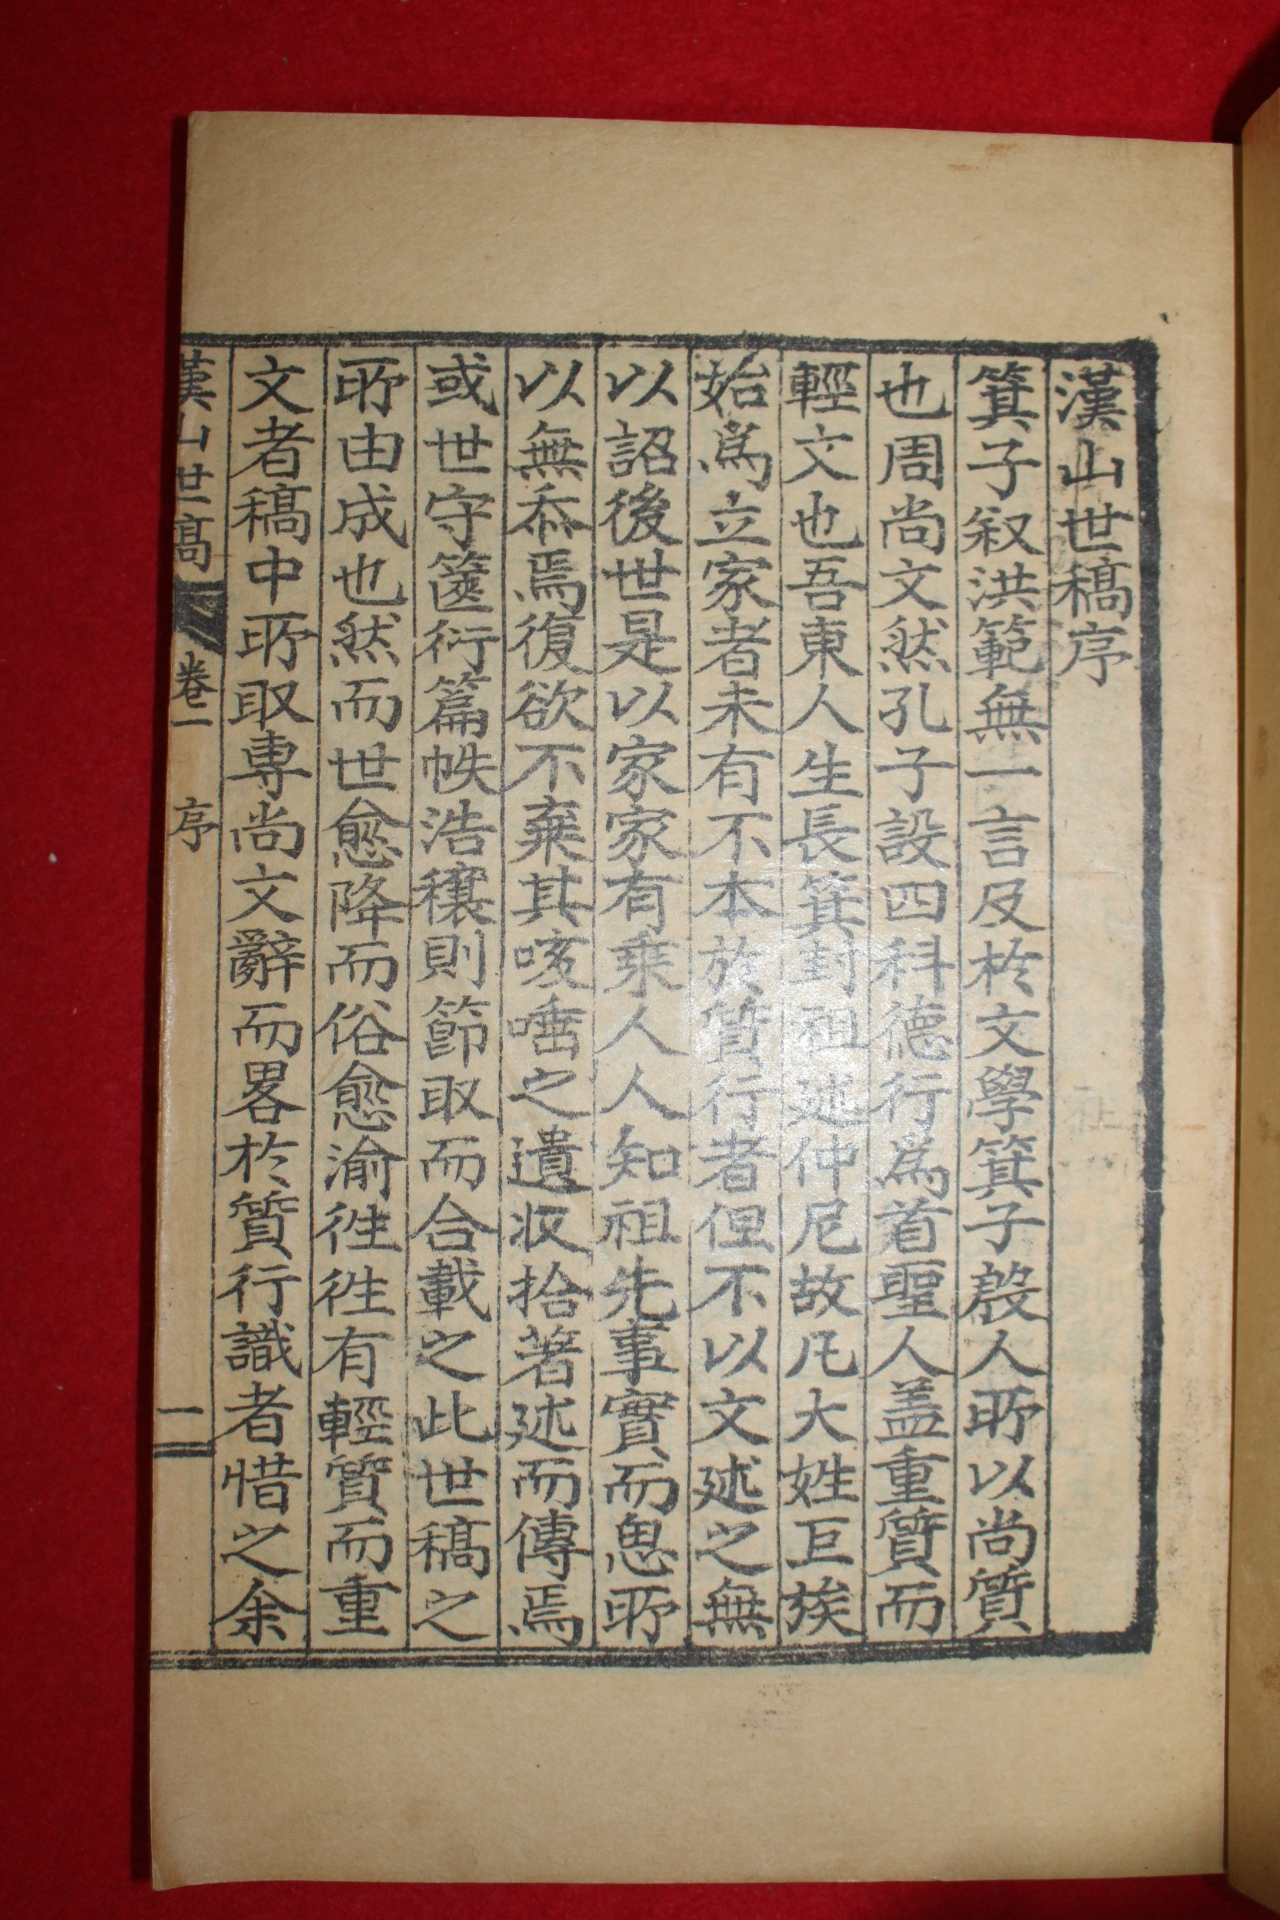 漢山世稿序
箕子叙洪範無一言及於文學箕子殷人所以尚質
也周尚文然孔子設四科德行爲首聖人盖重質而
輕文也吾東人生長箕封祖述仲尼故凡大姓巨族
始爲立家者未有不本於質行者但不以文述之無
以詔後世是以家家有乘人人知祖先事實而思所
以無忝焉復欲不棄其咳唾之遺收拾著述而傳焉
或世守篋衍篇帙浩穰則節取而合載之此世稿之
所由成也然而世愈降而俗愈渝徃徃有輕質而重
文者稿中所取專尚文辭而畧於質行識者惜之余
漢山世稿 卷一 序 一